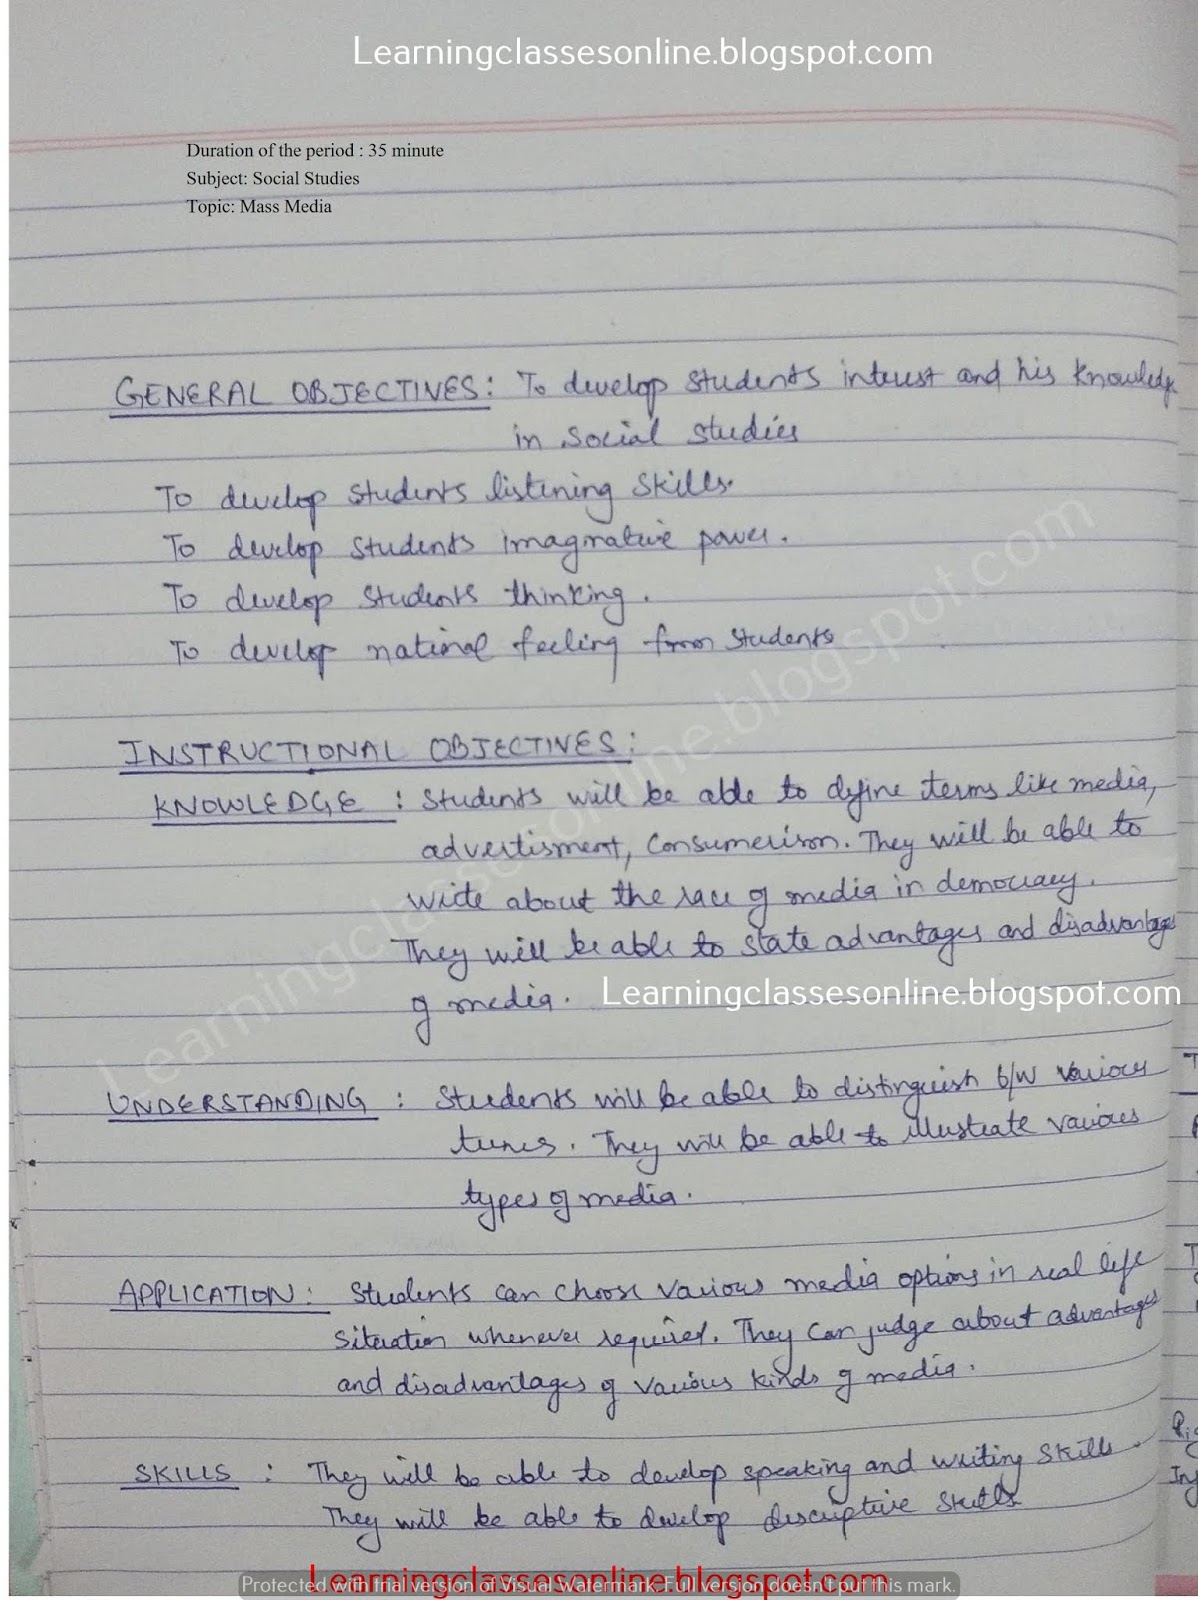 Learningclassesonline.blogspot.com
Duration of the period : 35 minute
Subject: Social Studies
Topic: Mass Media
GENERAL OBJECTIVES: To develop students interest and his knowledge
in social studies
To develop students listening skills.
To develop students imaginative power.
To develop students thinking.
To develop national feeling from students
INSTRUCTIONAL OBJECTIVES:
KNOWLEDGE : Students will be able to define terms like media,
advertisment, Consumerism. They will be able to
write about the race of media in democracy.
They will be able to state advantages and disadvantages
of media. Learningclassesonline.blogspot.com
Learningclassesonline.blogspot.com
UNDERSTANDING : Students will be able to distinguish b/w various
. They will be able to illustrate various
types of media.
APPLICATION: Students can choose various media options in real life
situation whenever required. They can judge about advantages
and disadvantages of various kinds of media.
SKILLS : They will be able to develop speaking and writing skills.
They will be able to develop descriptive skills
Learningclassesonline.blogspot.com
Protected with trial version of Visual Watermark. Full version doesn't put this mark.